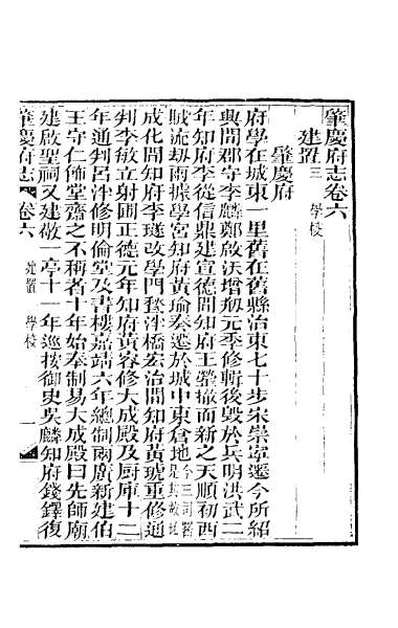 肇慶府志卷六
建置三 學校
肇慶府
府學在城東一里舊在舊縣治東七十步宋崇寧遷今所紹
興間郡守李麟鄭啟沃增剏元季修輯後毀於兵明洪武二
年知府李從信鼎建宣德間知府王罃撤而新之天順初西
賊流刼兩據學宮知府黃瑜奏遷於城中東倉地今三司署是其故址
成化間知府李璲改學門甃泮橋宏治間知府黃琥重修通
判李敏立射圃正德元年知府黃容修大成殿及厨庫十二
年通判呂泮修明倫堂及書樓嘉靖六年總制兩廣新建伯
王守仁飾堂齋之不稱者十年始奉制易大成殿曰先師廟
建啟聖祠又建敬一亭十一年巡按御史吳麟知府錢鐸復
肇慶府志 卷六 建置 學校 一